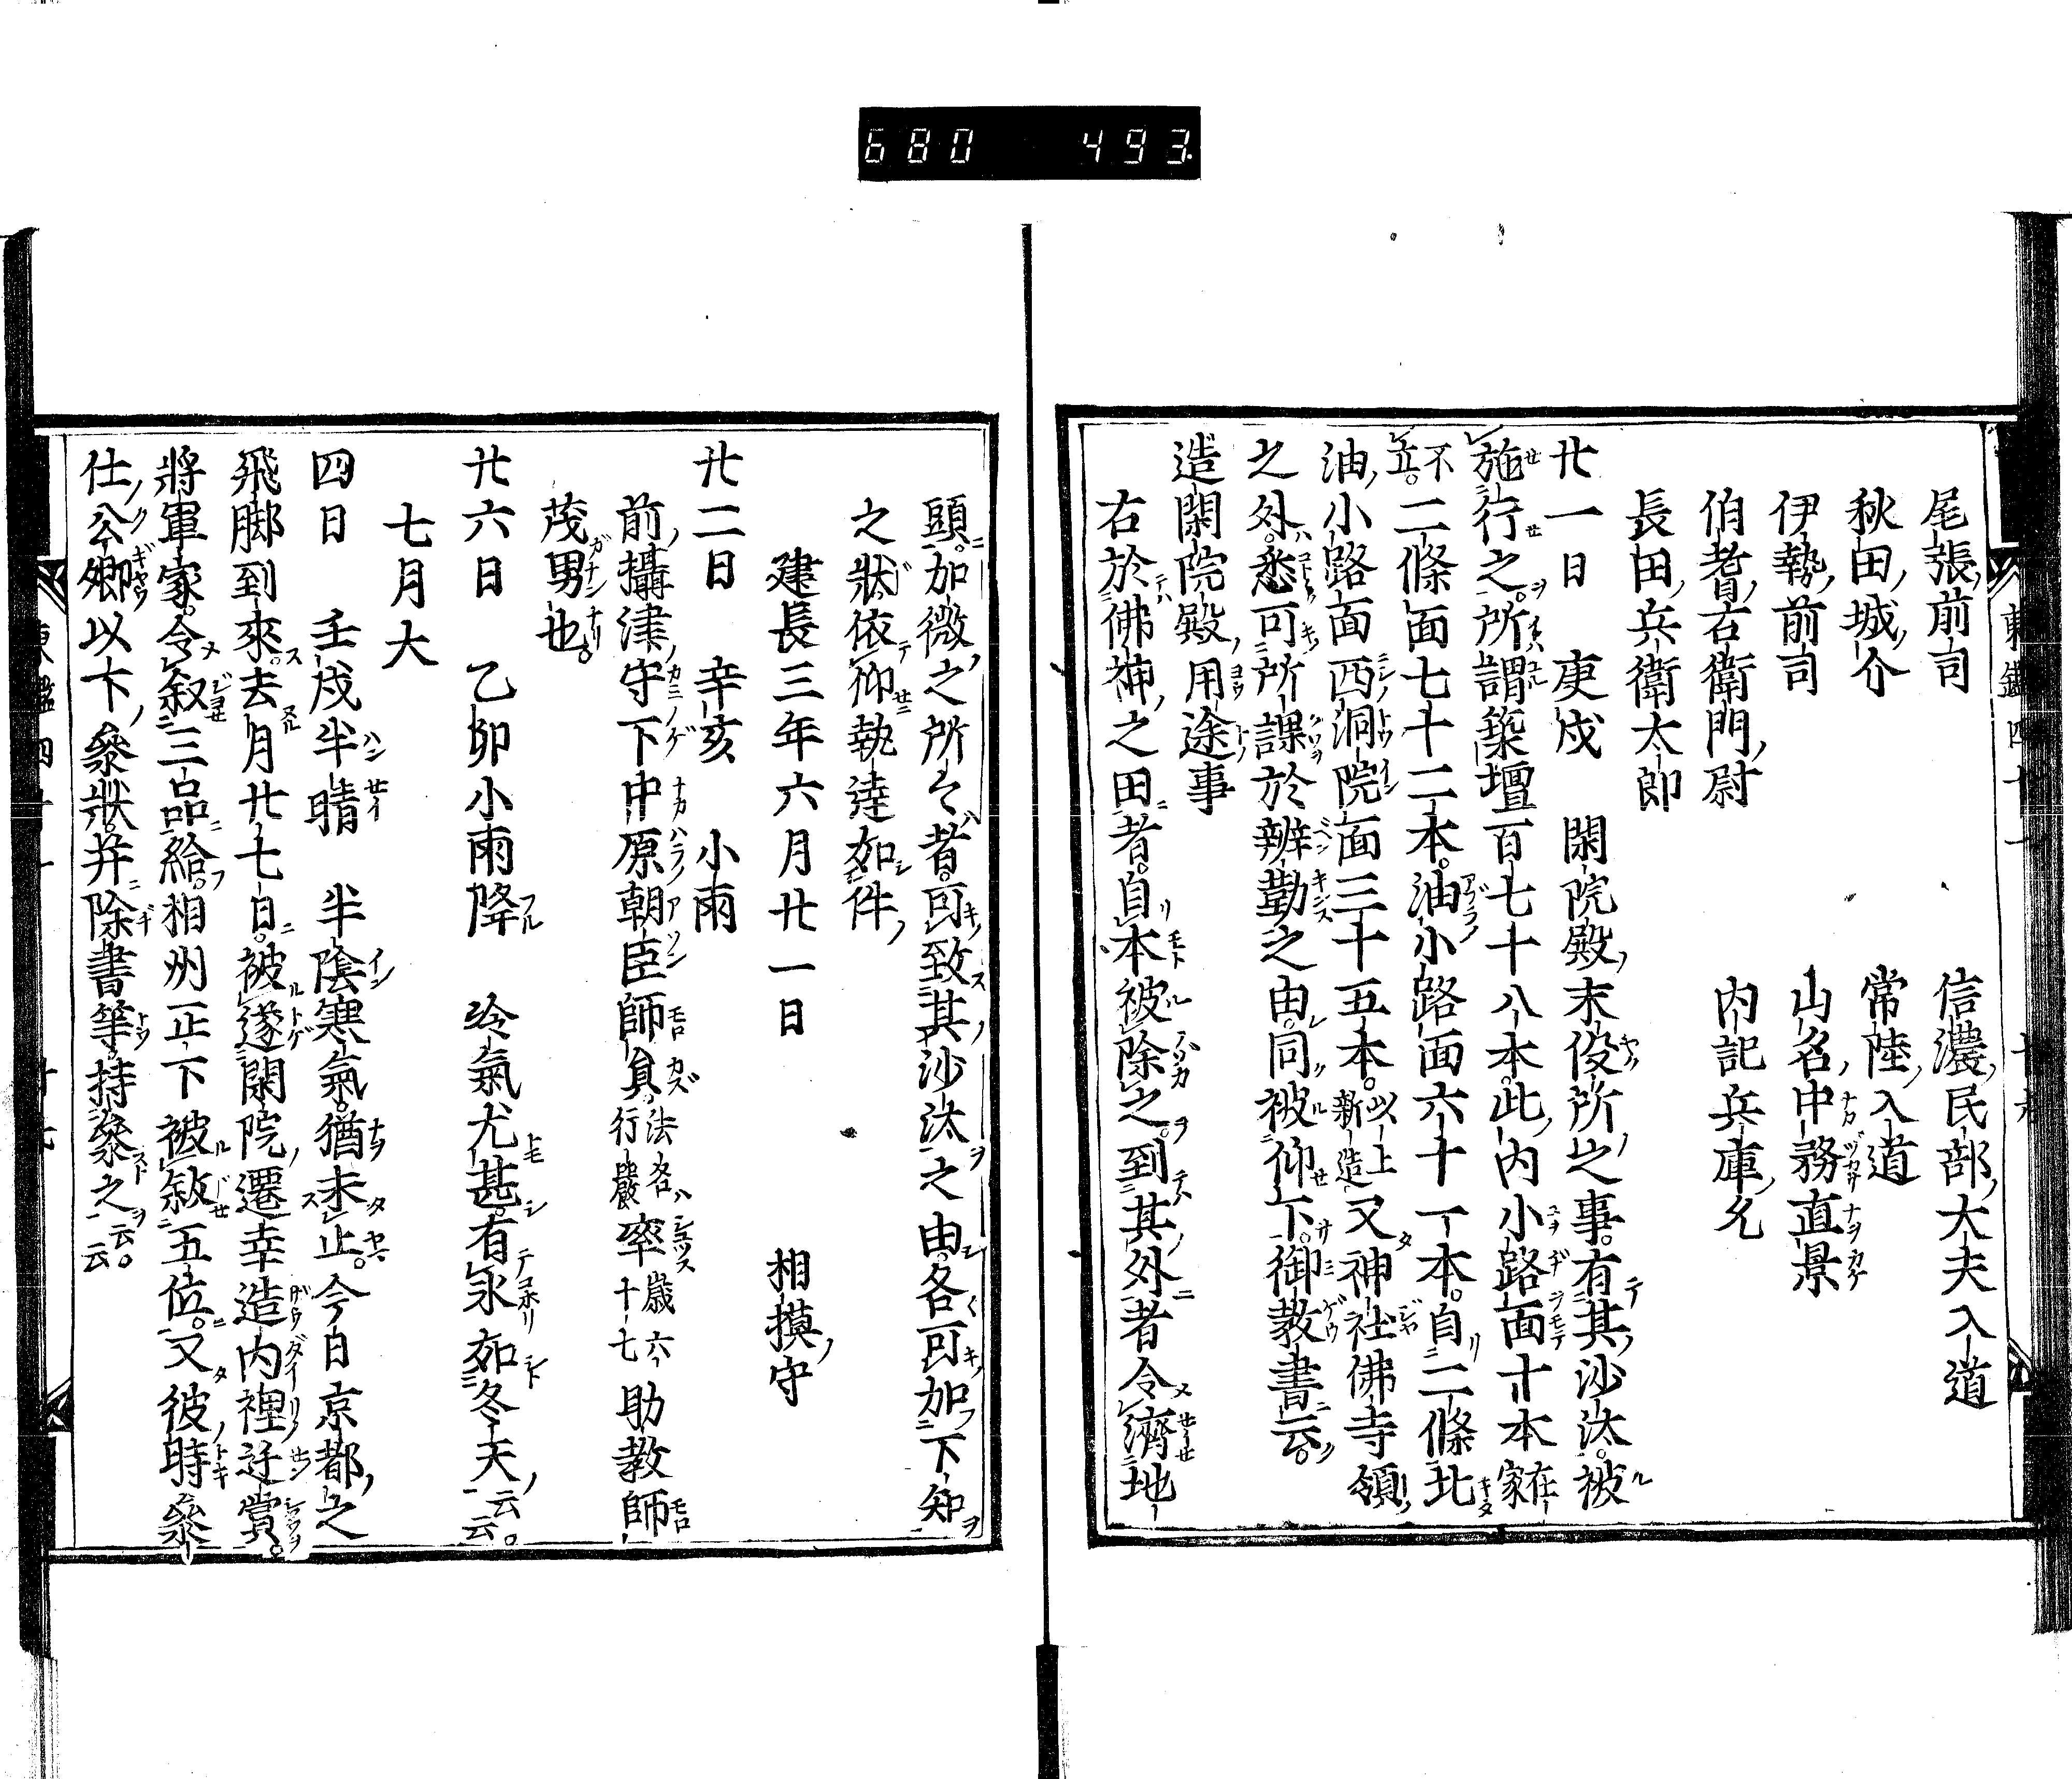 680 493.
尾張前司 信濃民部大夫入道
秋田城介 常陸入道
伊勢前司 山名中務直景
伯耆右衛門尉 内記兵庫允
長田兵衛太郎
廿一日 庚戌 閑院殿末役所之事。有其沙汰。被
施行之。所謂築壇百七十八本。此内小路面十本在家
不立。二條面七十二本。油小路面六十一本。自二條北
油小路面西洞院面三十五本。以上新造又神社佛寺領
之外。悉可所課於辨勤之由。同被仰下。御教書云。
造閑院殿用途事
右於佛神之田者。自本被除之。到其外者令濟地
頭。加微之所々者。可致其沙汰之由。各可加下知
之狀依仰執達如件
建長三年六月廿一日 相摸守
廿二日 辛亥 小雨
前攝津守下中原朝臣師員。法名行嚴卒歲六十七助教師
茂男也。
廿六日 乙卯小雨降 冷氣尤甚。有氷如冬天云云。
七月大
四日 壬戌半晴 半陰寒氣。猶未止。今日京都之
飛脚到來。去月廿七日。被遂閑院遷幸造内裡迁賞。
將軍家。令叙三品給。相州正下被敘五位。又彼時參
仕公卿以下參狀。并除書等。持參之云云。